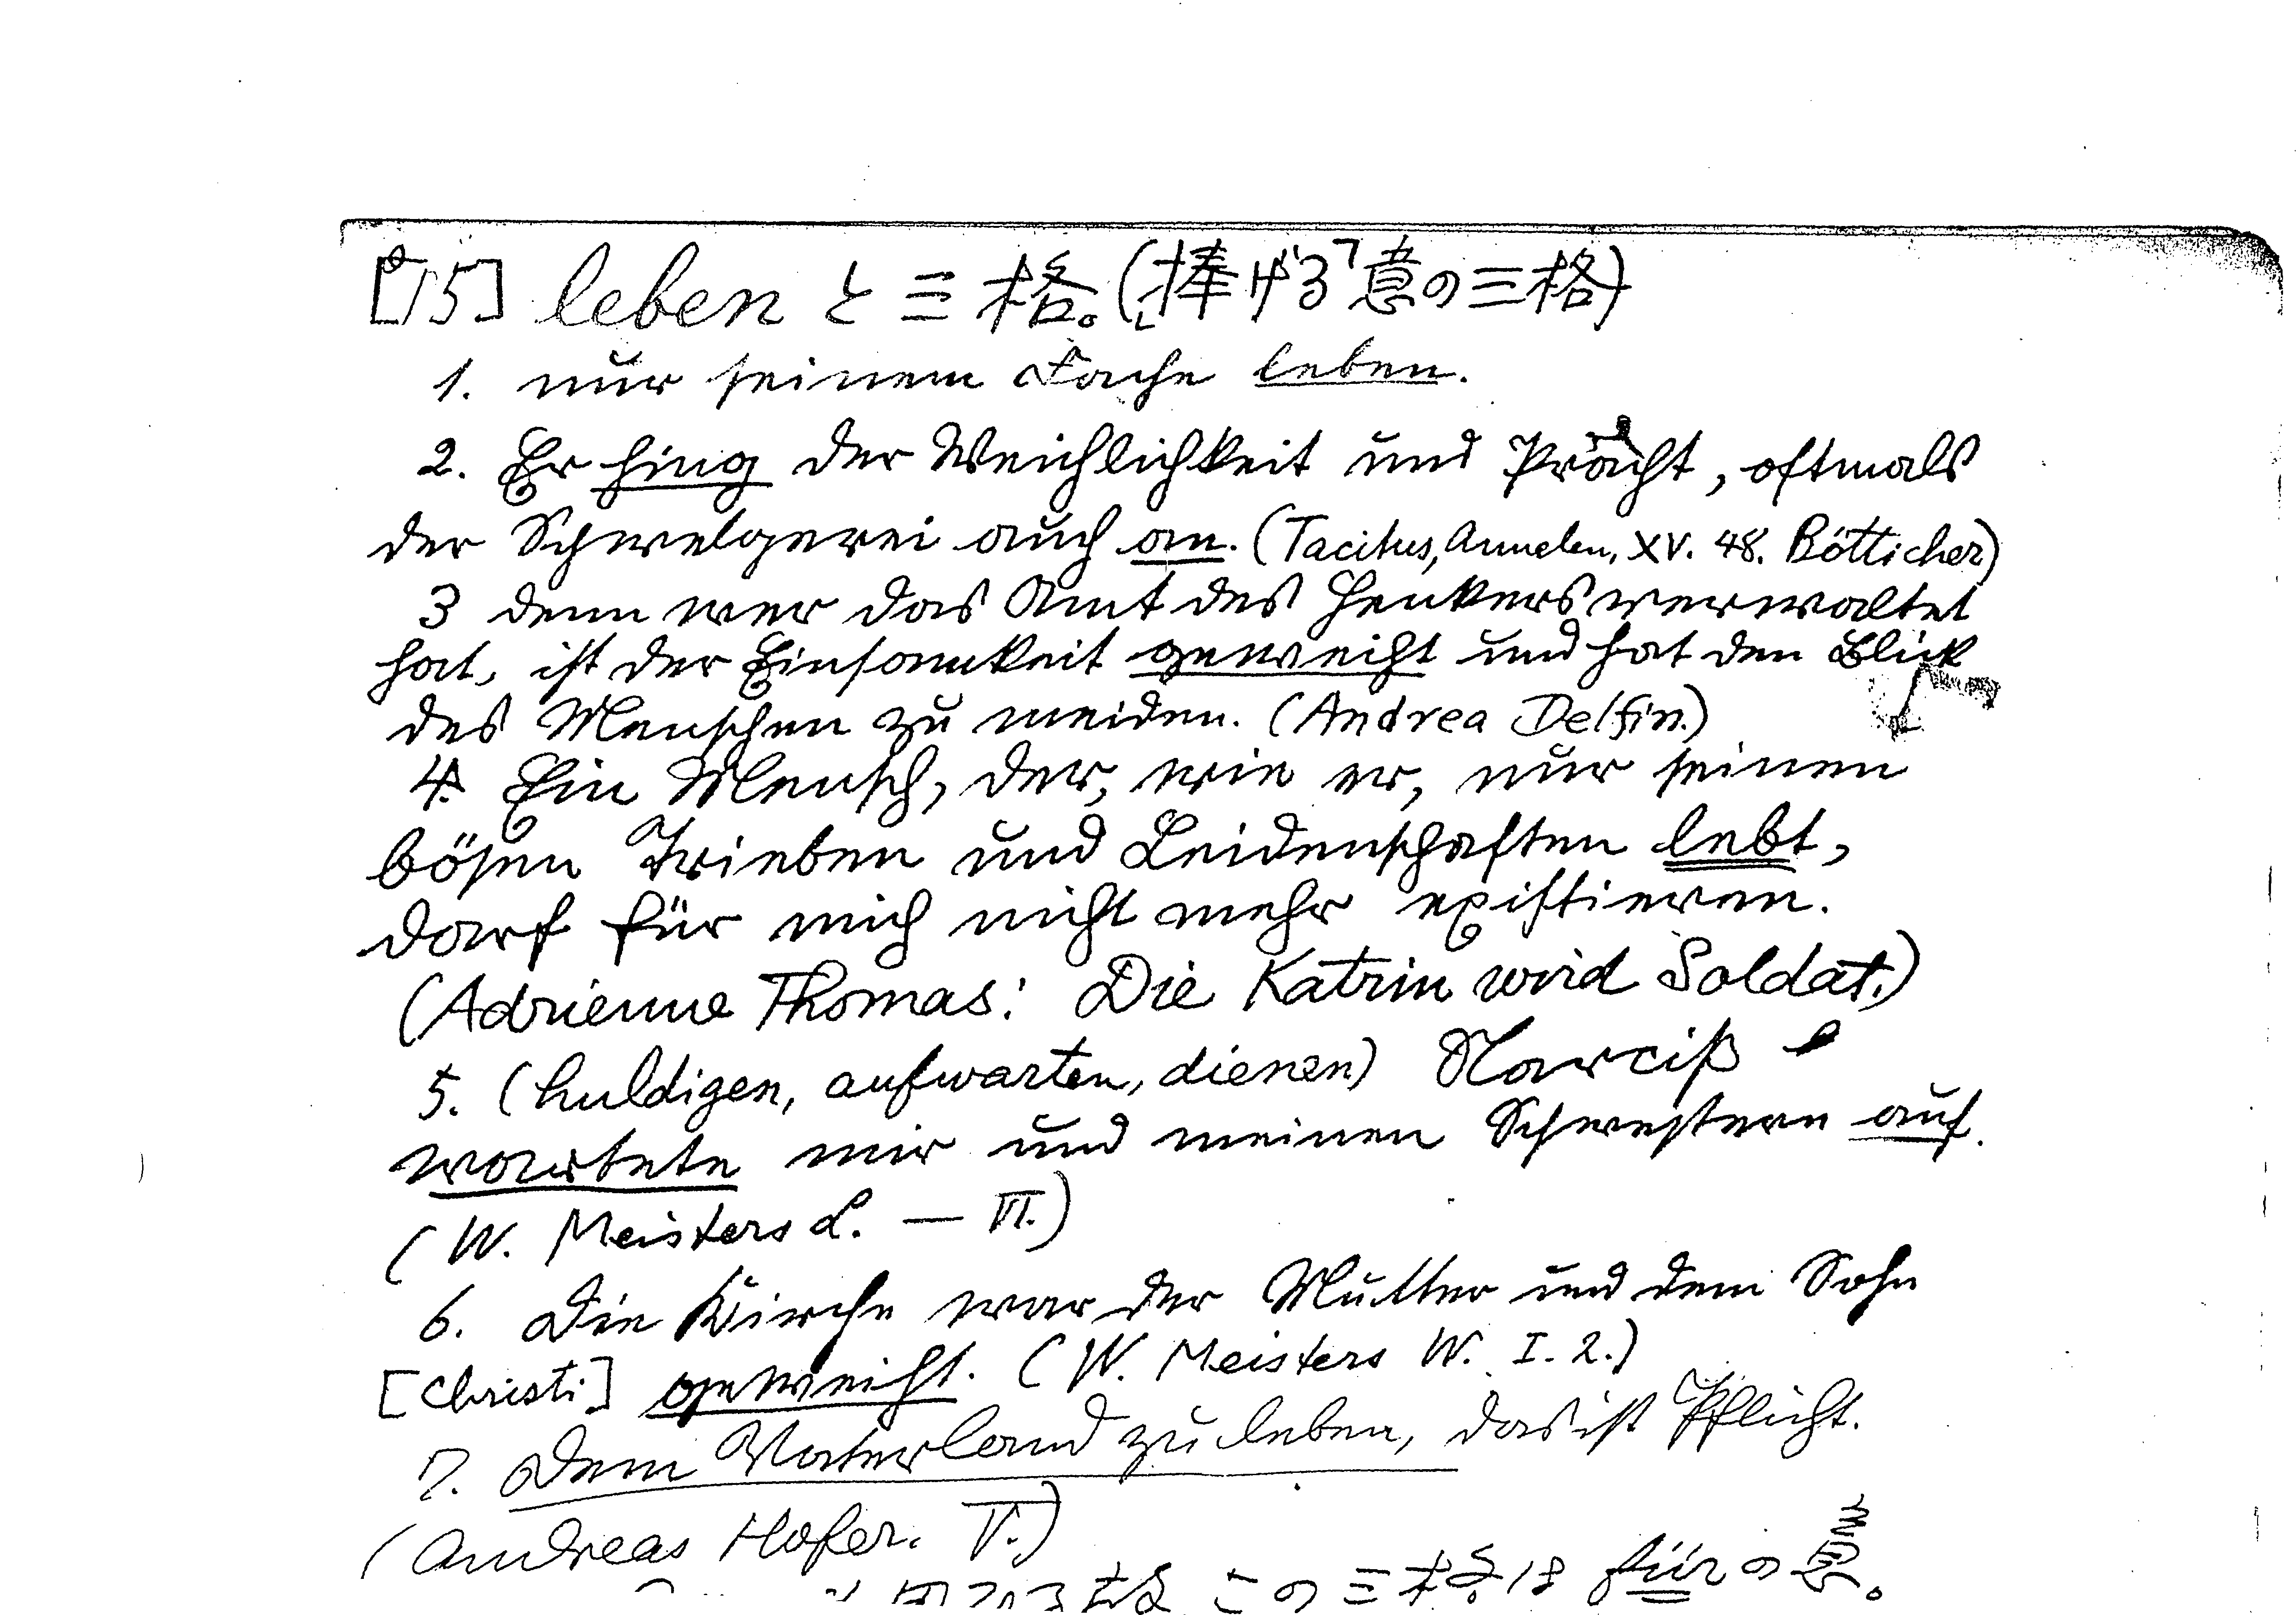 [15] leben と三格。(「捧げる」意の三格)
1. nur seinem Fache leben.
2. Er hing der Weichlichkeit und Pracht, oftmals
der Schwelgerei auch an. (Tacitus, Annalen, XV. 48. Bötticher)
3 denn wer das Amt des Henkers verwaltet
hat, ist der Einsamkeit geweiht und hat den Blick
des Menschen zu meiden. (Andrea Delfin.)
4. Ein Mensch, der, wie er, nur seinen
bösen Trieben und Leidenschaften lebt,
darf für mich nicht mehr existieren.
(Adrienne Thomas: Die Katrin wird Soldat.)
5. (huldigen, aufwarten, dienen) Narciß
wartete mir und meinen Schwestern auf.
(W. Meisters L. — VI.)
6. Die Kirche war der Mutter und dem Sohn
[Christi] geweiht. (W. Meisters W. I. 2.)
7. Dem Vaterland zu leben, das ist Pflicht.
(Andreas Hofer. V.)
この三格は für の意。